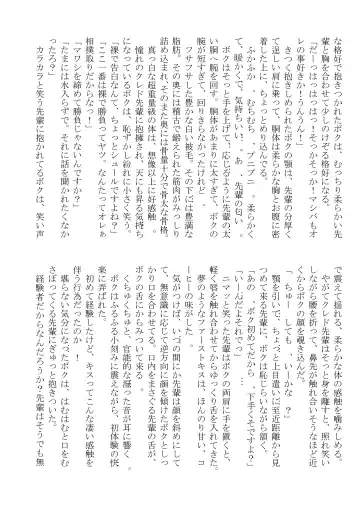 な格好で抱きつかれたボクは、むっちり柔らかい先
輩と胸を合わせて少しのけぞる格好になる。
「だーっはっはっは！そっかそっか！マシバもオ
レの事好きかーうんうん！」
きつく抱きしめられたボクの顎は、先輩の分厚く
て逞しい肩に乗って、胴体は柔らかな胸とお腹に密
着した上に、ちょっとめり込んでる。
ふかふか…、むちむち…、プニプニ…、柔らかく
て、暖かくて、気持ちいい…。あ、先輩の匂い…。
ボクはそっと手を上げて、応じるように先輩の太
い胴へ腕を回す。胴体があまりに太すぎて、ボクの
腕が短すぎて、回りきらなかったけれど。
フサフサした豊かな白い被毛。その下には豊満な
脂肪。その奥には稽古で鍛えられた筋肉がみっしり
詰め込まれ、そのまた奥には骨量十分で骨太な骨格。
真っ白な超重量級の体は、想像以上に好感触。
憧れのアブクマ先輩に抱擁され、天にも昇る気持ち
になっているボクは、恥ずかし紛れに小さく笑う。
「裸で告白なんて、ちょっとシュールですよね？」
「ここ一番は裸で勝ってヤツ。なんたってオレぁ
相撲取りだからな！」
「マワシを締めて勝負じゃないんですか？」
「たまには水入らずで、それに話を聞かれたくなか
ったろ？」
カラカラと笑う先輩に抱かれてるボクは、笑い声
で震えて揺れる、柔らかな体の感触を噛みしめる。
やがてクレド先輩はそっと身を離すと、照れ笑い
しながら腰を折って、鼻先が触れ合いそうなほど近
くからボクの顔を覗き込んだ。
「ちゅー…しても…、いーかな…？」
顎を引いて、ちょっと上目遣いに至近距離から見
つめて来る先輩に、ボクは恥じらいながら頷く。
「あの…、ボク初めてだから…、下手くそですよ？」
「いーんだよそれで…」
ニマッと笑った先輩はボクの両肩に手を置くと、
軽く唇を触れ合わせてからゆっくり舌を入れてきた。
夢のようなファーストキスは、ほんのり甘い、コ
ーヒーの味がした。
気がつけば、いつの間にか先輩は顔を斜めにして
て、無意識に応じて逆方向に顔を傾けたボクとしっ
かり口を合わせてる。口内をまさぐる先輩の舌が、
ボクの舌にからみついて来る。
くちゅくちゅと、官能的な湿った音が耳に響く。
ボクはふるふる小刻みに震えながら、初体験の快
楽に弄ばれた。
初めて経験したけど、キスってこんな凄い感触を
伴う行為だったのか！
堪らない気分になったボクは、はむはむと口をむ
さぼってくる先輩にぎゅっと抱きついた。
経験者だからなんだろうか？先輩はそうでも無